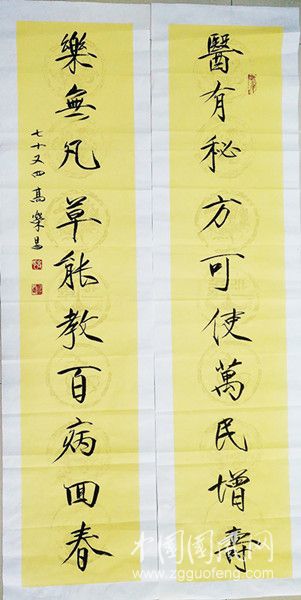 醫有秘方可使萬民增壽
樂無凡草能教百病回春
七十又四高樂
中国国风网
www.zgguofeng.com